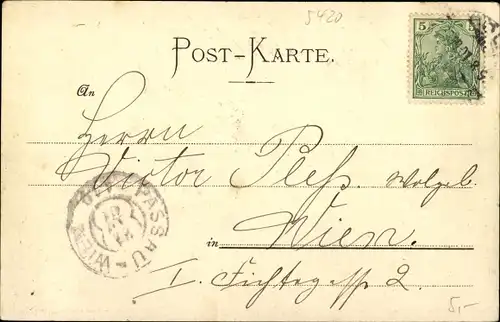 5420
5
REICHSPOST
POST-KARTE.
An
Herrn
Victor Pleß, Wolgeb.
PASSAU-WIEN
in Wien.
I. Fichtegasse 2.
5,-